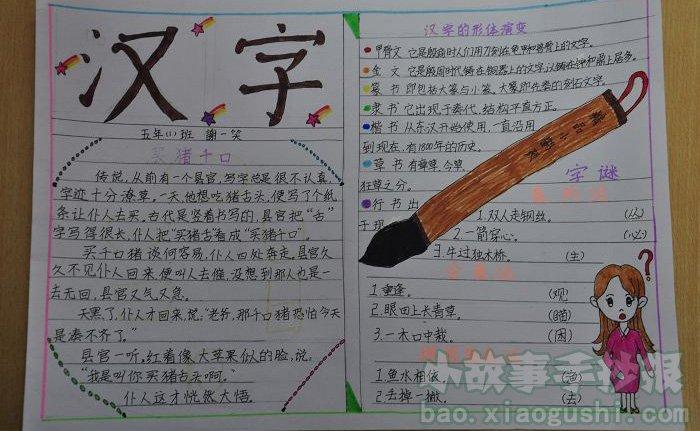 汉字
五年(1)班 谢一笑
买猪千口
传说，从前有一个县官，写字总是很不认真，
字迹十分潦草。一天，他想吃猪舌头，便写了个纸
条让仆人去买。古代是竖着书写的，县官把"舌"
字写得很长，仆人把"买猪舌"看成"买猪千口"。
买千口猪谈何容易，仆人四处奔走。县官久
久不见仆人回来，便叫人去催，没想到那人也是一
去无回，县官又气又急。
天黑了，仆人才回来，说："老爷，那千口猪恐怕今天
是凑不齐了。"
县官一听，红着像大苹果似的脸，说：
"我是叫你买猪舌头啊。"
仆人这才恍然大悟。
汉字的形体演变
甲骨文 它是殷商时人们用刀刻在龟甲和兽骨上的文字。
金 文 它是殷周时代铸在铜器上的文字，以铸在钟和鼎上居多。
篆 书 即包括大篆与小篆，大篆即先秦的刻石文字。
隶 书 它出现于秦代，结构平直方正。
楷 书 从东汉开始使用，一直沿用
到现在，有1800年的历史。
草 书 有章草、今草、
狂草之分。
行 书 出
字谜
1.双人走钢丝。 (丛)
2.一箭穿心。 (必)
3.牛过独木桥。 (生)
1.重逢。 (观)
2.眼田上长青草。 (瞄)
3.一木口中栽。 (困)
1.鱼水相依。 (渔)
2.丢掉一撇。 (去)
小故事手抄报
bao.xiaogushi.com